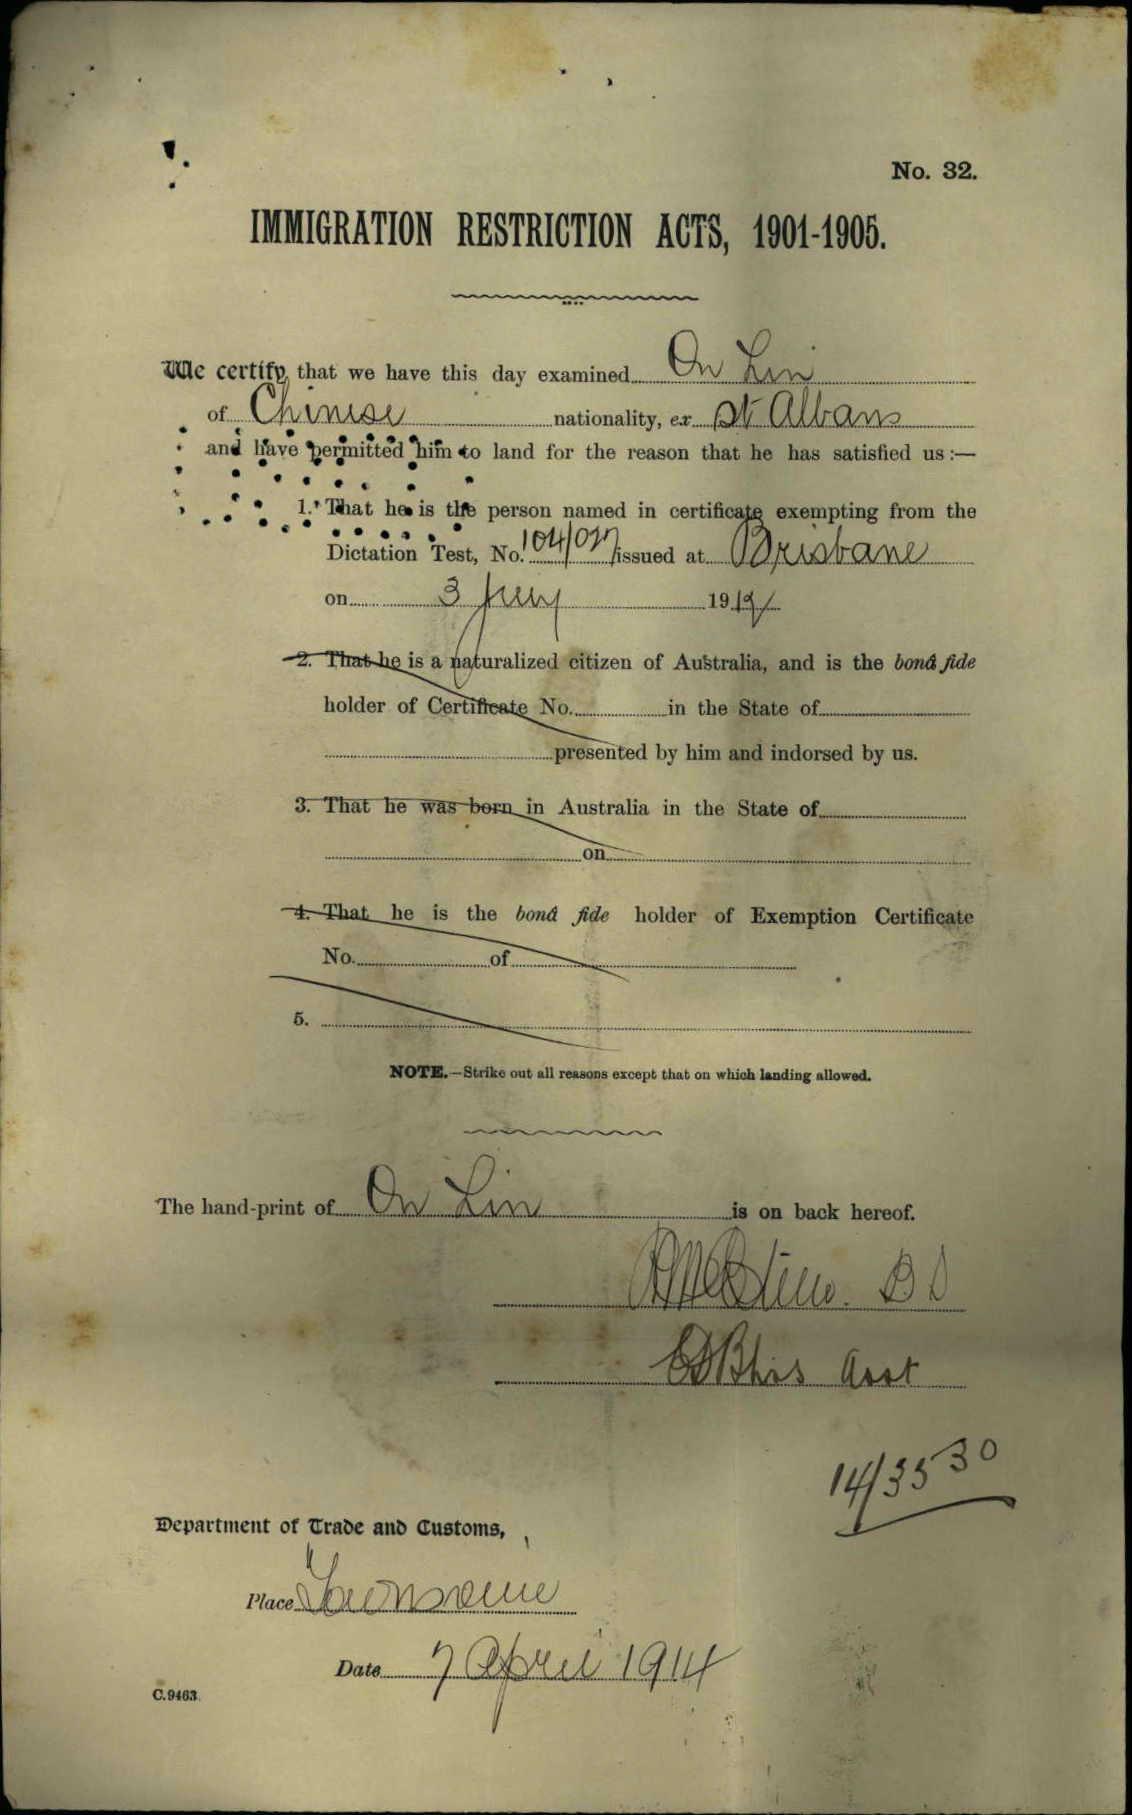 No. 32.
IMMIGRATION RESTRICTION ACTS, 1901-1905.
We certify that we have this day examined On Lin
of Chinese nationality, ex St Albans
and have permitted him to land for the reason that he has satisfied us :—
1. That he is the person named in certificate exempting from the
Dictation Test, No. 104/027 issued at Brisbane
on 3 July 191
2. That he is a naturalized citizen of Australia, and is the bonâ fide
holder of Certificate No. in the State of
presented by him and indorsed by us.
3. That he was born in Australia in the State of
on
4. That he is the bonâ fide holder of Exemption Certificate
No. of
5.
NOTE.—Strike out all reasons except that on which landing allowed.
The hand-print of On Lin is on back hereof.
Asst
14/3530
Department of Trade and Customs,
Place Townsville
Date 7 April 1914
C.9463.